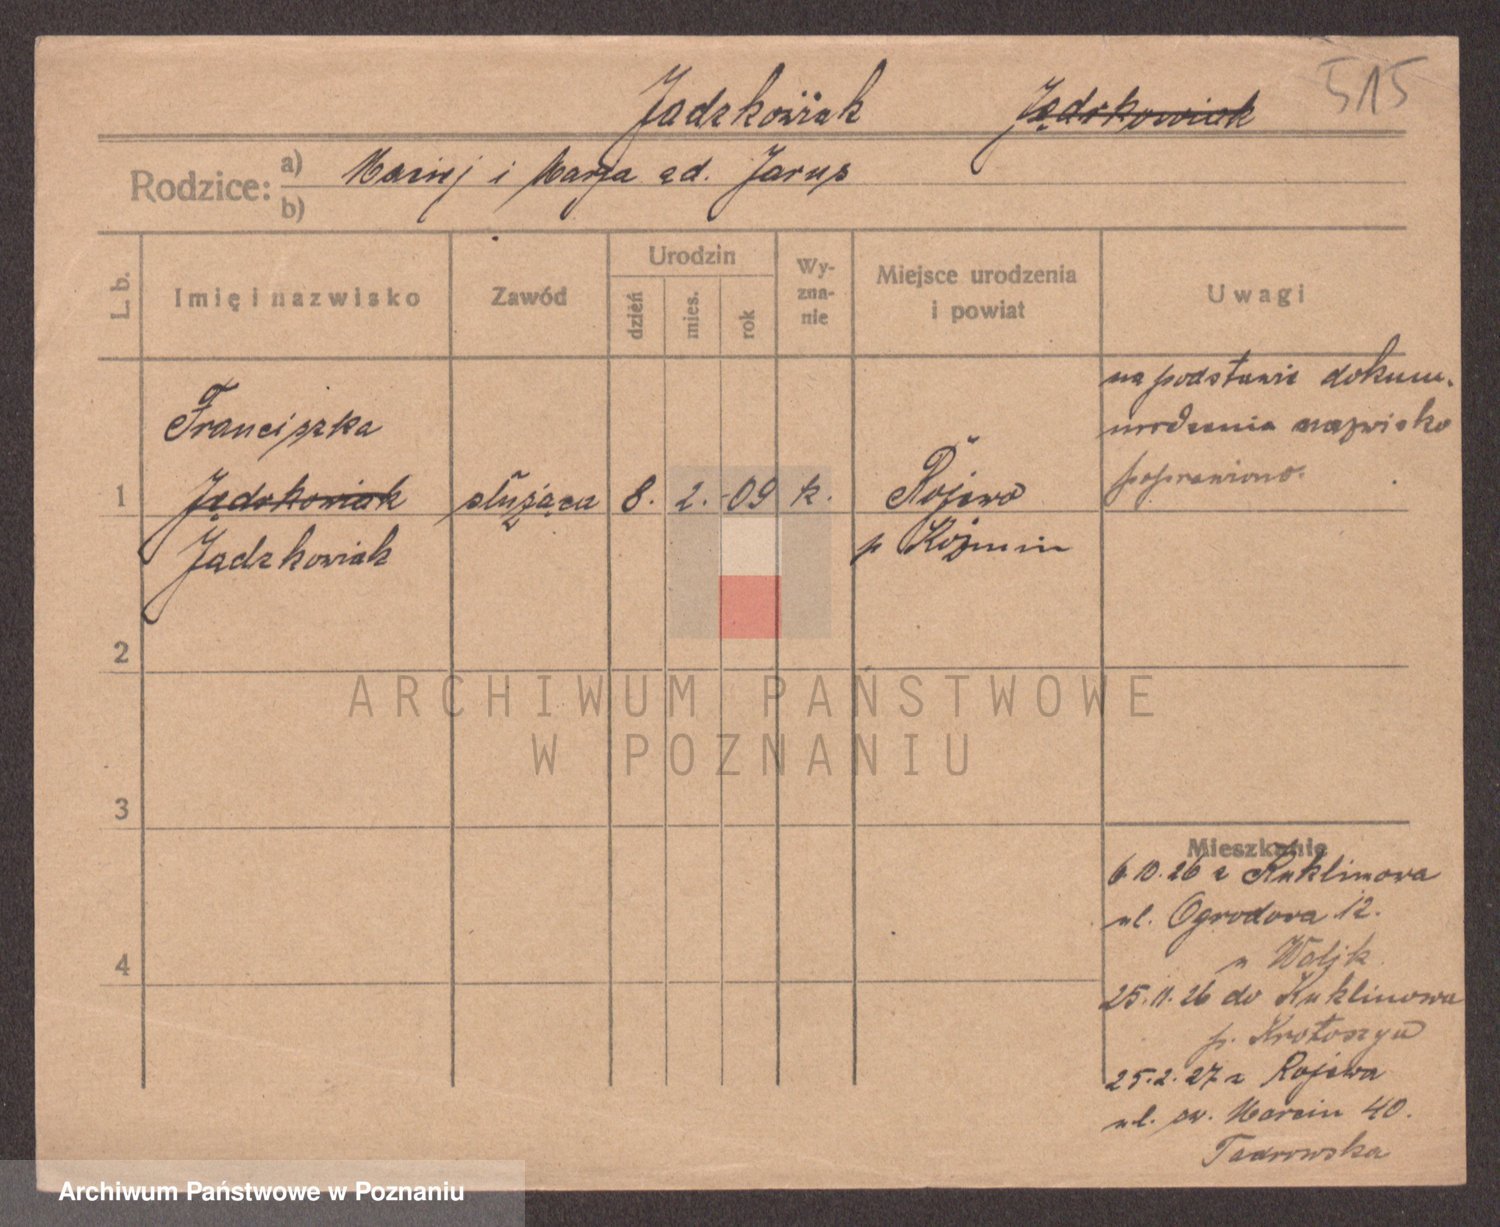 Jądzkowiak Jędrkowiak 515
Rodzice: a) Maciej i Marja zd. Jarus
b)
L. b.
Imię i nazwisko
Zawód
Urodzin
dzień
mies.
rok
Wy-
zna-
nie
Miejsce urodzenia
i powiat
Uwagi
na podstawie dokum.
urodzenia nazwisko
poprawiono.
Franciszka
1 Jędrkowiak służąca 8. 2. -09 k. Rojewo
Jądzkowiak p Koźmin
2
3
4
Mieszkanie
6.10.26 z Kuklinowa
ul. Ogrodowa 12.
u
25.11.26 do Kuklinowa
p. Krotoszyn
25.2.27 z Rojewa
ul. św. Marcin 40.
ARCHIWUM PAŃSTWOWE
W POZNANIU
Archiwum Państwowe w Poznaniu